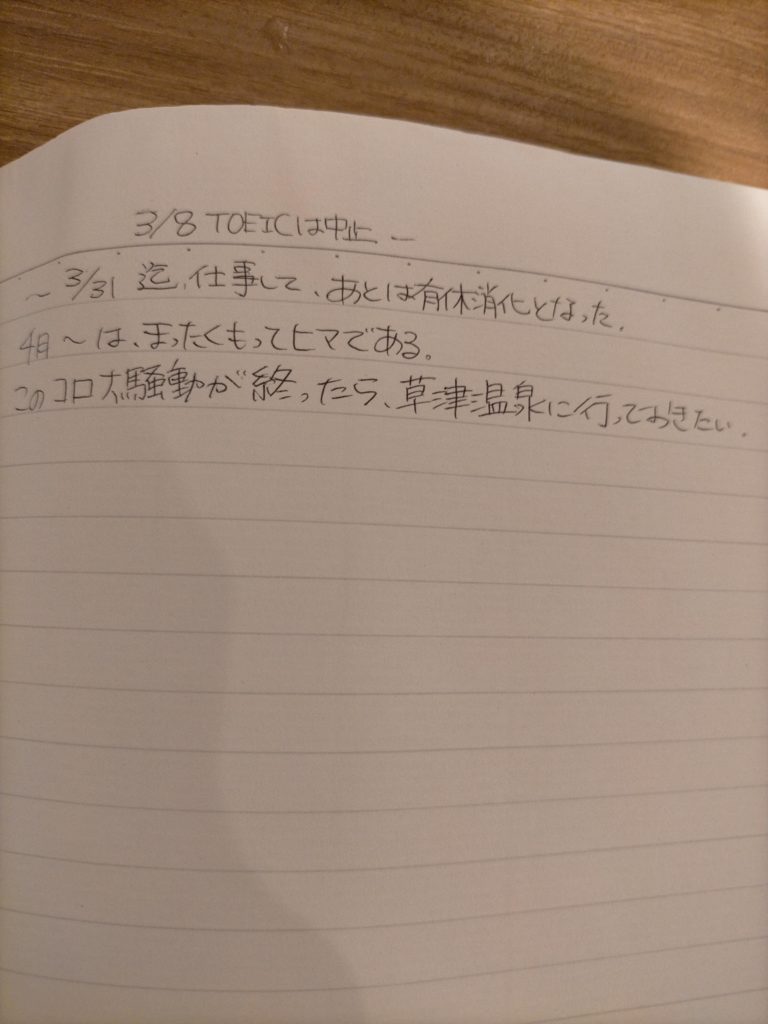 3/8 TOEICは中止 ー
～ 3/31 迄、仕事して、あとは有休消化となった.
4月～は、まったくもってヒマである。
このコロナ騒動が終ったら、草津温泉に行っておきたい.